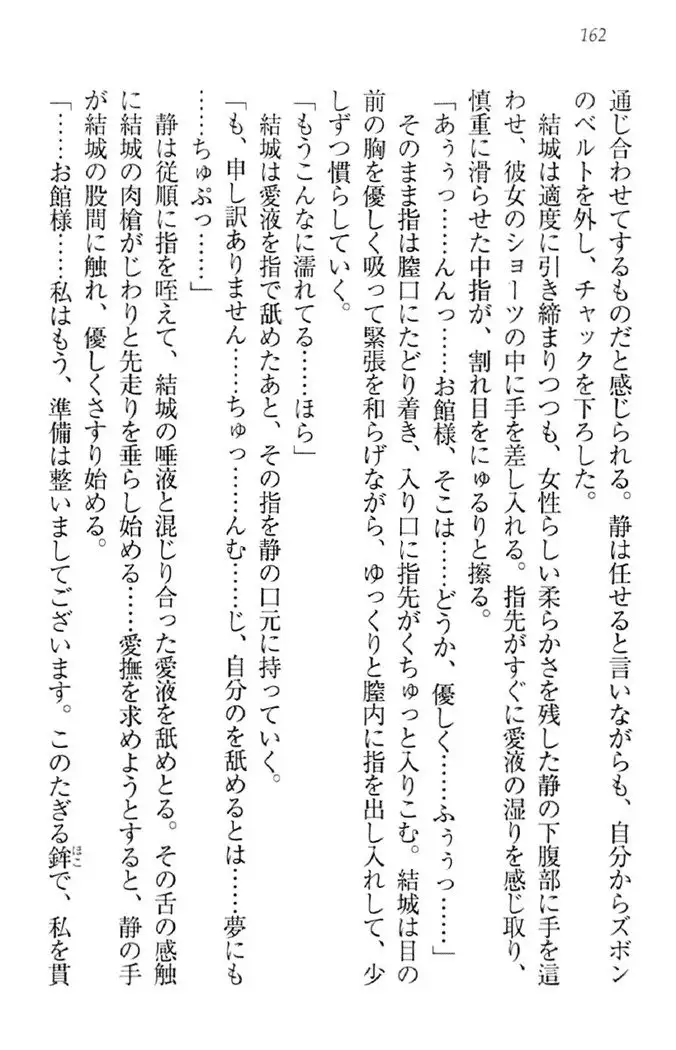 162
通じ合わせてするものだと感じられる。静は任せると言いながらも、自分からズボン
のベルトを外し、チャックを下ろした。
結城は適度に引き締まりつつも、女性らしい柔らかさを残した静の下腹部に手を這
わせ、彼女のショーツの中に手を差し入れる。指先がすぐに愛液の湿りを感じ取り、
慎重に滑らせた中指が、割れ目をにゅるりと擦る。
「あぅぅっ……んんっ……お館様、そこは……どうか、優しく……ふぅぅっ……」
そのまま指は膣口にたどり着き、入り口に指先がくちゅっと入りこむ。結城は目の
前の胸を優しく吸って緊張を和らげながら、ゆっくりと膣内に指を出し入れして、少
しずつ慣らしていく。
「もうこんなに濡れてる……ほら」
結城は愛液を指で舐めたあと、その指を静の口元に持っていく。
「も、申し訳ありません……ちゅっ……んむ……じ、自分のを舐めるとは……夢にも
……ちゅぷっ……」
静は従順に指を咥えて、結城の唾液と混じり合った愛液を舐めとる。その舌の感触
に結城の肉槍がじわりと先走りを垂らし始める……愛撫を求めようとすると、静の手
が結城の股間に触れ、優しくさすり始める。
「……お館様……私はもう、準備は整いましてございます。このたぎる鉾ほこで、私を貫